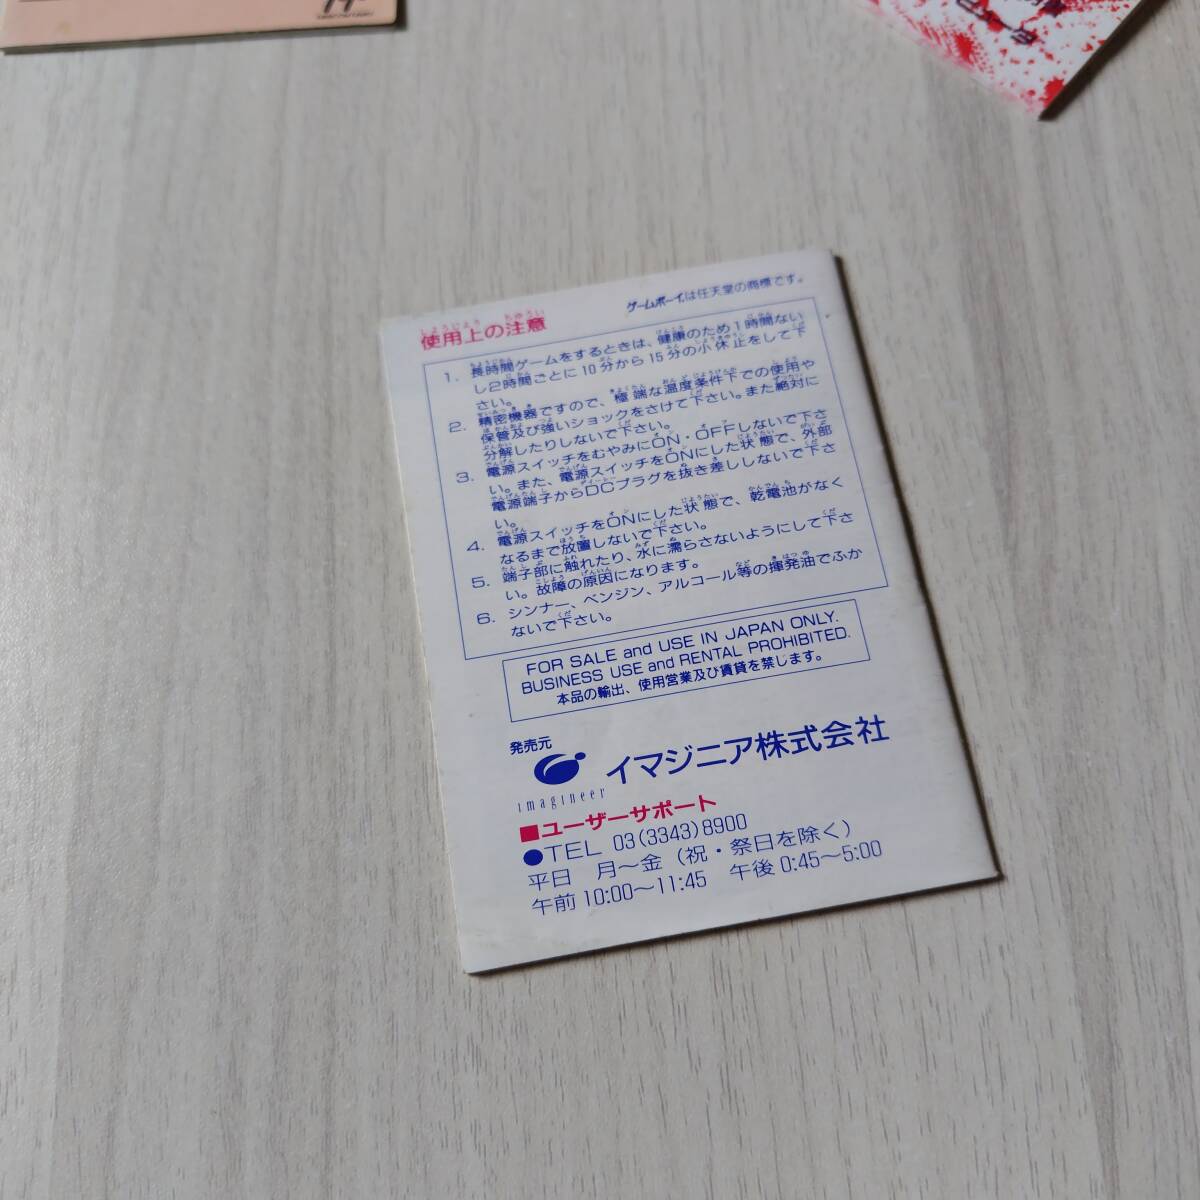 ゲームボーイは任天堂の商標です。
使用上の注意
1. 長時間ゲームをするときは、健康のため1時間ない
し2時間ごとに10分から15分の小休止をして下
さい。
2. 精密機器ですので、極端な温度条件下での使用や
保管及び強いショックをさけて下さい。また絶対に
分解したりしないで下さい。
3. 電源スイッチをむやみにON・OFFしないで下さ
い。また、電源スイッチをONにした状態で、外部
電源端子からDCプラグを抜き差ししないで下さ
い。
4. 電源スイッチをONにした状態で、乾電池がなく
なるまで放置しないで下さい。
5. 端子部に触れたり、水に濡らさないようにして下さ
い。故障の原因になります。
6. シンナー、ベンジン、アルコール等の揮発油でふか
ないで下さい。
FOR SALE and USE IN JAPAN ONLY.
BUSINESS USE and RENTAL PROHIBITED.
本品の輸出、使用営業及び賃貸を禁じます。
発売元
imagineer
イマジニア株式会社
■ユーザーサポート
●TEL 03(3343)8900
平日 月〜金(祝・祭日を除く)
午前10:00〜11:45 午後0:45〜5:00